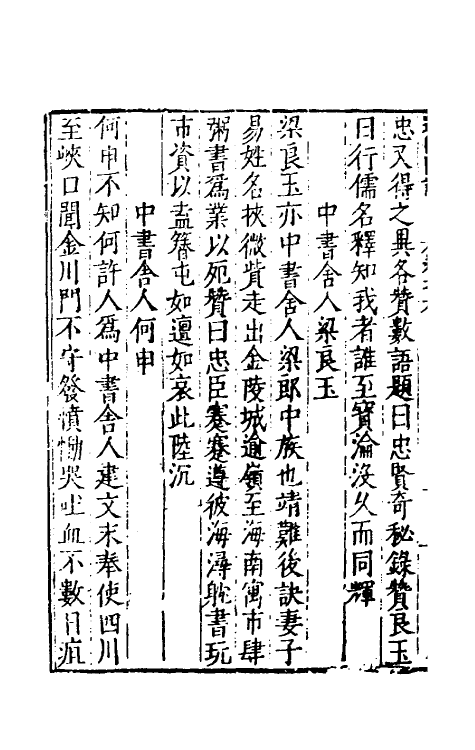 忠又得之異各贊數語題曰忠賢奇秘錄贊良玉
曰行儒名釋知我者誰至寶淪沒久而同輝
中書舍人梁良玉
梁良玉亦中書舍人梁郎中族也靖難後訣妻子
易姓名挾微貲走出金陵城逾嶺至海南寓市肆
粥書爲業以死贊曰忠臣蹇蹇遵彼海潯躭書玩
市資以盍簪屯如邅如哀此陸沉
中書舍人何申
何申不知何許人爲中書舍人建文末奉使四川
至峽口聞金川門不守發憤慟哭吐血不數日疽